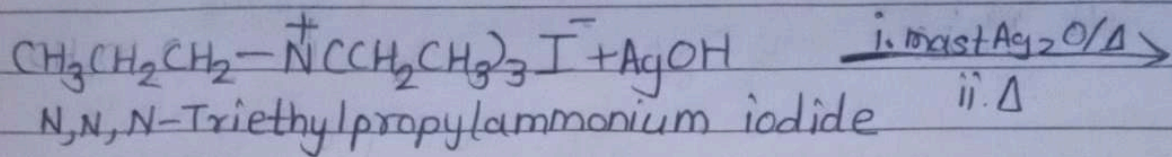 CH₃CH₂CH₂–N⁺(CH₂CH₃)₃I⁻+AgOH i. mast Ag₂O/Δ ii. Δ →
N,N,N-Triethylpropylammonium iodide